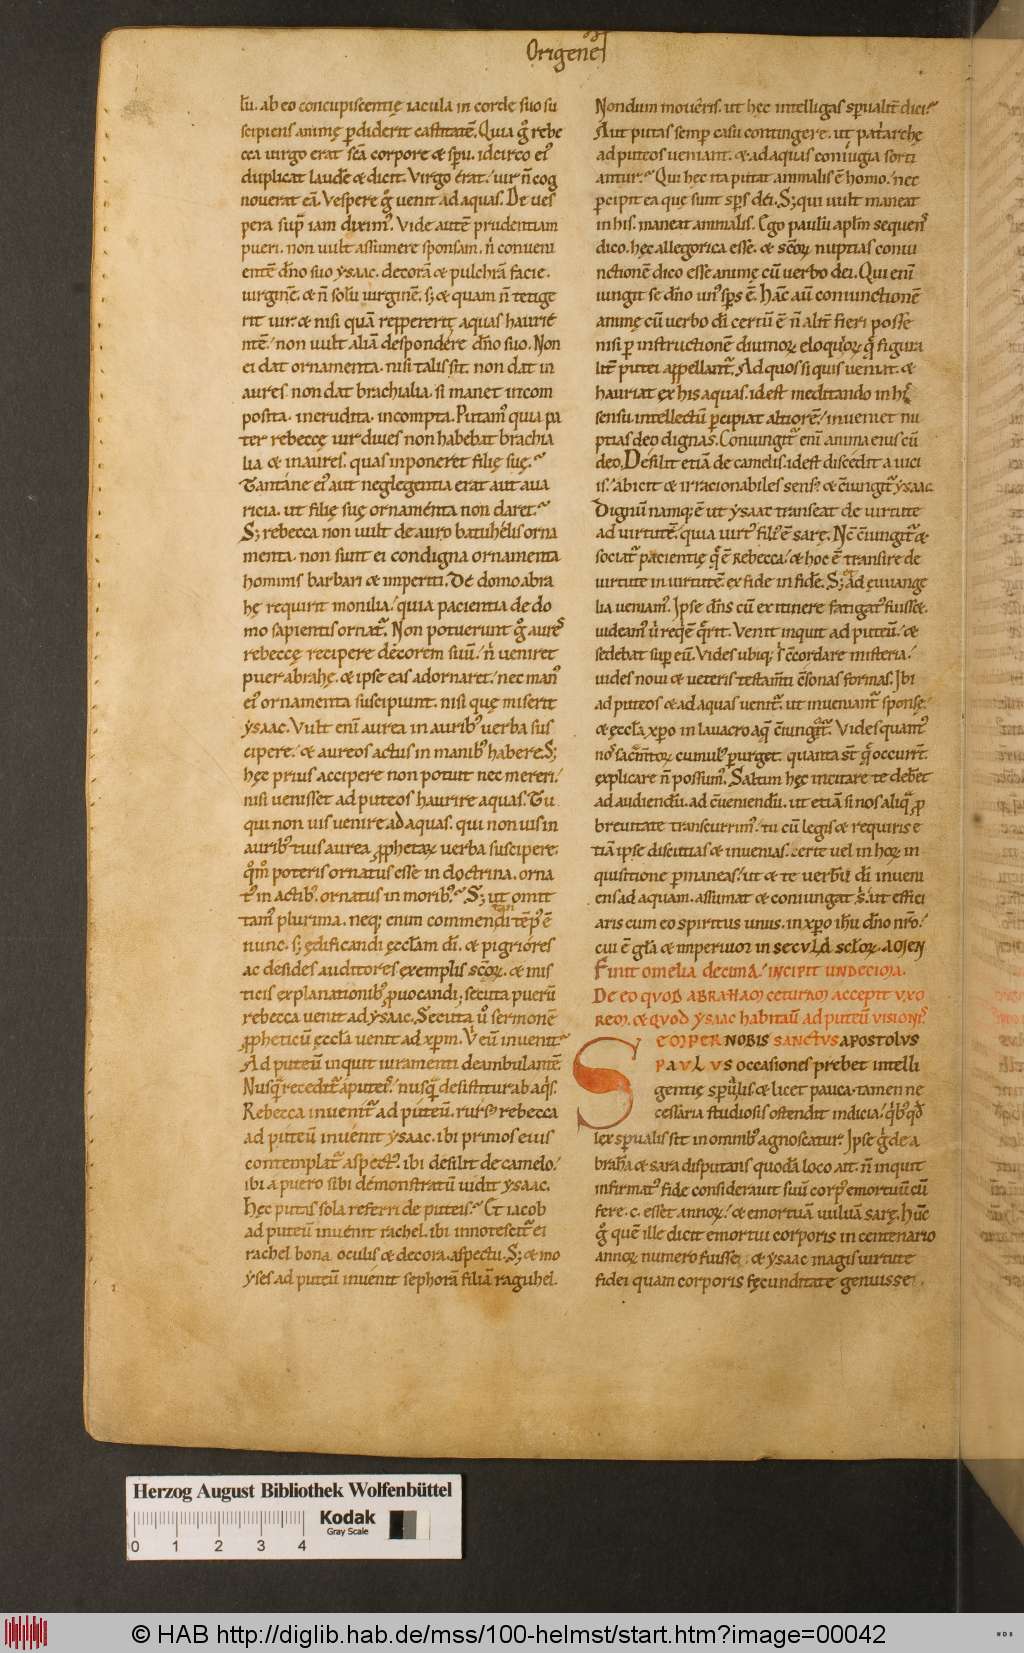 Origenes
lu. ab eo concupiscentię iacula in corde suo su
scipiens animę pdiderit castitatē. Quia g̊ rebe
cca uirgo erat scā corpore & spu. idcirco ei᾽
duplicat laudē & dicit. Virgo erat. uir n̄ cog
nouerat eā. Vespere g̊ venit ad aquas. De ues
pera sup̄ iam dixim᾽. Vide autē prudentiam
pueri. non uult assumere sponsam. n̄ conueni
entē dn̄o suo ysaac. decorā & pulchrā facie.
uirginē. & n̄ solū uirginē. s; & quam n̄ tetige
rit uir. & nisi quā reppererit aquas haurie
ntē. non uult aliā despondere dn̄o suo. Non
ei dat ornamenta. nisi talis sit. non dat in
aures non dat brachialia. si manet incom
posita. inerudita. incompta. Putam᾽ quia pa
ter rebeccę uir diues non habebat brachia
lia & inaures. quas inponeret filię suę.
Tantane ei᾽ aut neglegentia erat aut aua
ricia. ut filię suę ornamenta non daret.
S; rebecca non uult de auro batuhelis orna
menta. non sunt ei condigna ornamenta
hominis barbari & imperiti. De domo abra
hę requirit monilia. quia pacientia de do
mo sapientis ornat᾽. Non potuerunt g̊ aures
rebeccę recipere decorem suū. n̄ veniret
puer abrahę. & ipse eas adornaret. nec man᾽
ei᾽ ornamenta suscipiunt. nisi quę miserit
ysaac. Vult enī aurea in aurib᾽ uerba sus
cipere. & aureos actus in manib᾽ habere. S;
hęc prius accipere non potuit nec mereri.
nisi uenisset ad puteos haurire aquas. Tu
qui non uis venire ad aquas. qui non uis in
aurib᾽ tuis aurea pphetarꝝ uerba suscipere.
qm̊o poteris ornatus esse in doctrina. orna
t᾽ in actib᾽. ornatus in morib᾽. S; ut omit
tam᾽ plurima. neq; enim commentandi tēp᾽ ē
nunc. s; ędificandi ęcclam di. & pigriores
ac desides auditores exemplis scōꝝ. & mis
ticis explanationib᾽ puocandi; secuta puerū
rebecca uenit ad ysaac. Secuta u᾽ sermonē
ppheticum ęccla uenit ad xpm. Vᵇi eū inuenit
Ad puteū inquit iuramenti deambulantē.
Nusq̄ recedit᾽ a puteis. nusq̄ desistitur ab aq̊s.
Rebecca inuenit᾽ ad puteū. rurs᾽ rebecca
ad puteū inuenit ysaac. ibi primos eius
contemplat᾽ aspect᾽. ibi desilit de camelo.
ibi a puero sibi demonstratū uidit ysaac.
Hęc putas sola referri de puteis. Et iacob
ad puteū inuenit rachel. ibi innotescit᾽ ei
rachel bona oculis & decora aspectu. S; & mo
yses ad puteū inuenit sephorā filiā raguhel.
Nondum moueris. ut hęc intelligas spualit̄ dici.
Aut putas semp casu contingere. ut patarchę
ad puteos ueniant. & ad aquas coniugia sorti
antur. Qui hec ita putat animalis ē homo. nec
pcipit ea quę sunt sp̄s dei. S; qui uult maneat
in his. maneat animalis. Ego paulū aplm sequens
dico. hęc allegorica esse. & scōꝝ nuptias coniu
nctionē dico esse animę cū uerbo dei. Qui enī
iungit se dn̄o un᾽ sp̄s ē. Hāc aū coniunctionē
animę cū uerbo di certū ē n̄ alit̄ fieri posse
nisi p instructionē diuinoꝝ eloquioꝝ. q̄ figura
lit̄ putei appellant᾽. Ad quos si quis ueniat. &
hauriat ex his aquas. id est meditando in his
sensū. intellectū pcipiat altiorē. inueniet nu
ptias deo dignas. Coniungit᾽ enī anima eius cū
deo. Desilit etiā de camelis. id est discedit a uici
is. abicit & irracionabiles sens᾽. & c̄iungit᾽ ysaac
Dignū namq; ē ut ysaac transeat de uirtute
ad uirtutē. quia uirt᾽ fili᾽ ē sarę. Nc̄ c̄iungit᾽ &
sociat᾽ pacientię q̄ ē rebecca. & hoc ē transire de
uirtute in uirtutē. ex fide in fidē. S; & ad ęuuange
lia ueniam᾽. Ipse dn̄s cū ex itinere fatigat᾽ fuisse.
uideam᾽ u᾽ reqiē q̄rit. Venit inquit ad puteū. &
sedebat sup eū. Vides ubiq; sᶦ c̄cordare misteria.
uides noui & ueteris testam̄ti c̄sonas formas. Ibi
ad puteos & ad aquas venit᾽. ut inueniant᾽ sponsę.
& ęccla xpo in lauacro aq̄ c̄iungit᾽. Vides quant᾽
nos sacm̄toꝝ cumul᾽ purget. quanta st̄ q̄ occurrt̄.
explicare n̄ possum᾽. Saltim hęc incitare te debet
ad audiendū. ad c̄ueniendū. ut etiā si nos aliqua p
breuitate transcurrim᾽. tu cū legis & requiris e
tiā ipse discutias & inuenias. certe uel in hoꝝ in
quisitione pmaneas. ut & te uerbū di inueni
ens ad aquam. assumat & coniungat sᶦ. ut effici
aris cum eo spiritus unus. in xpo ihu dn̄o nr̄o.
cui ē gla & imperium in secula sclōꝝ. amen
Finit omelia decima. incipit undecima.
De eo quod abraham ceturam accepit uxo
rem. & quod ysaac habitauit ad puteū uisionis.
Semper nobis sanctus apostolus
paulus occasiones prebet intelli
gentię spualis. & licet pauca. tamen ne
cessaria studiosis ostendit indicia. qib᾽ qd̄
lex spualis sit in omnib᾽ agnoscatur. Ipse g̊ de a
braha & sara disputans quodā loco ait. n̄ inquit
infirmat᾽ fide considerauit suū corp᾽ emortuū cū
fere .c. esset annoꝝ. & emortuā uuluā sarę. Hunc
g̊ quē ille dicit emortui corporis in centenario
annoꝝ numero fuisse. & ysaac magis uirtute
fidei quam corporis fęcunditate genuisse.
Herzog August Bibliothek Wolfenbüttel
Kodak
Gray Scale
0 1 2 3 4
© HAB http://diglib.hab.de/mss/100-helmst/start.htm?image=00042